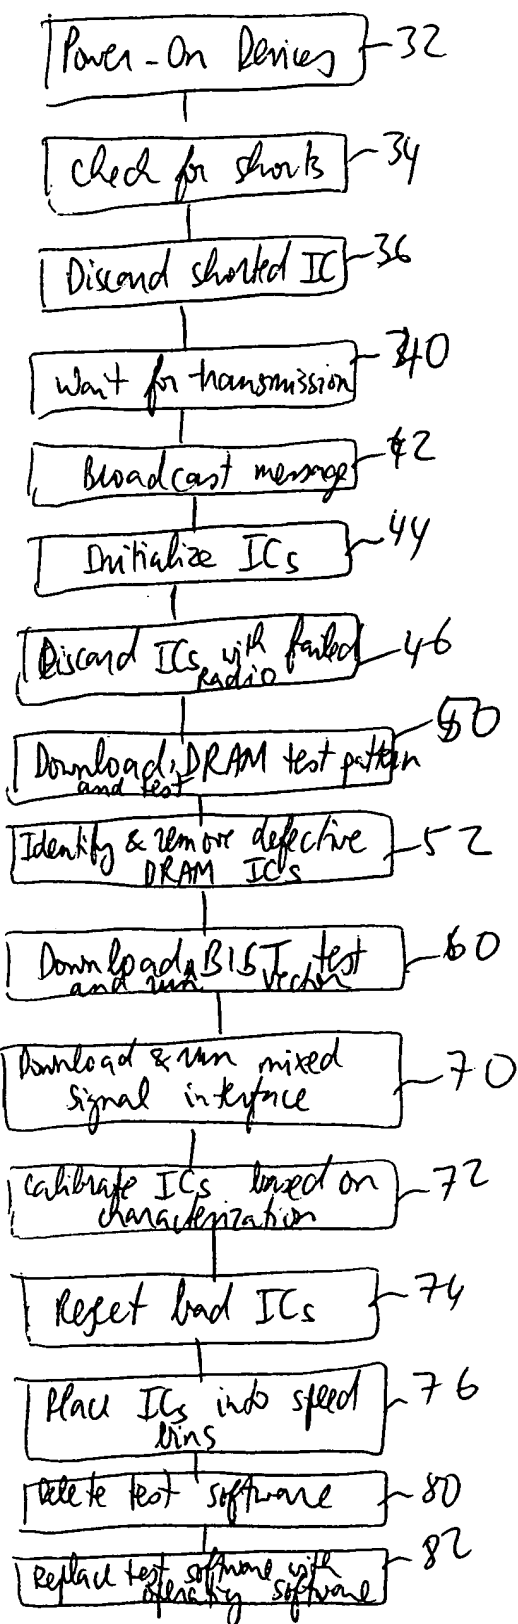 Power-On Devices 32
Check for shorts 34
Discard shorted IC 36
Wait for transmission 40
Broadcast message 42
Initialize ICs 44
Discard ICs with failed 46
Radio
Download, DRAM test pattern 50
and test
Identify & remove defective 52
DRAM ICs
Download BIST test 60
and run vector
Download & run mixed 70
signal interface
Calibrate ICs based on 72
characterization
Reject bad ICs 74
Place ICs into speed 76
bins
Delete test software 80
Replace test software with 82
operating software